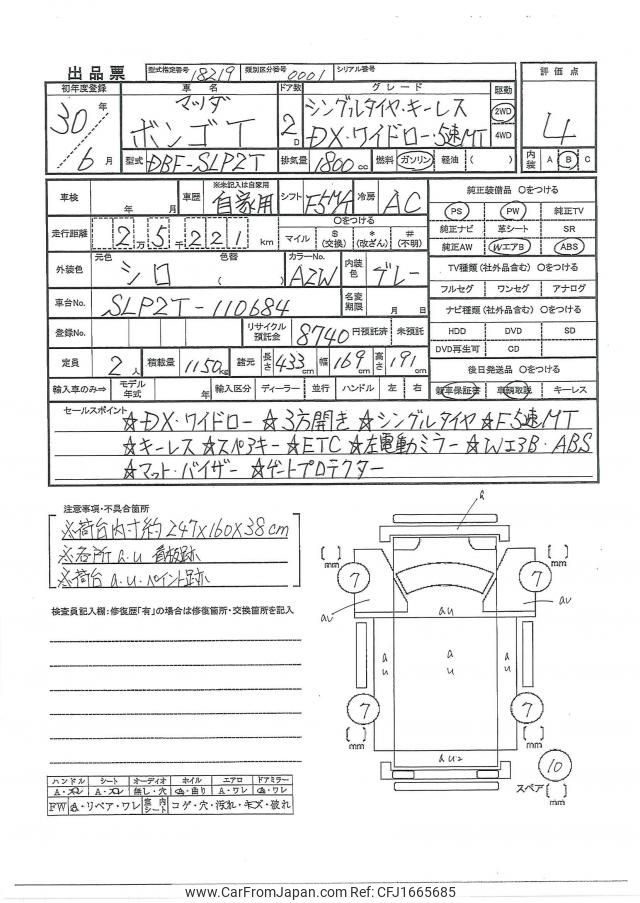 出品票 型式指定番号 18219 類別区分番号 0001 シリアル番号
初年度登録 車名 ドア数 グレード 駆動 評価点
30年 マツダ シングルタイヤ・キーレス 2WD
ボンゴT 2D DX・ワイドロー・5速MT 4WD 4
6月 型式 DBF-SLP2T 排気量 1800cc 燃料 ガソリン 軽油 ( ) 内装 A B C
車検 年 月 車歴 ※未記入は自家用 自家用 シフト F5MT 冷房 AC 純正装備品 〇をつける
PS PW 純正TV
走行距離 2万5千221km 〇をつける マイル $(交換) *(改ざん) #(不明) 純正ナビ 革シート SR
純正AW WエアB ABS
外装色 元色 シロ 色替 ( ) カラーNo. A2W 内装色 グレー TV種類(社外品含む) 〇をつける
フルセグ ワンセグ アナログ
車台No. SLP2T-110684 名変期限 月 日 ナビ種類(社外品含む) 〇をつける
登録No. リサイクル預託金 8740円預託済 未預託 HDD DVD SD
DVD再生可 CD
定員 2人 積載量 1150kg 諸元 長さ 433cm 幅 169cm 高さ 191cm 後日発送品 〇をつける
輸入車のみ⇒ モデル年式 年 輸入区分 ディーラー 並行 ハンドル 左 右 新車保証書 車輌取説 キーレス
セールスポイント
☆DX・ワイドロー ☆3方開き ☆シングルタイヤ ☆F5速MT
☆キーレス ☆スペアキー ☆ETC ☆左電動ミラー ☆WエアB・ABS
☆マット・バイザー ☆ゲートプロテクター
注意事項・不具合箇所
※荷台内寸約247×160×38cm
※各所a.u 看板跡
※荷台a.u.ペイント跡
検査員記入欄:修復歴「有」の場合は修復箇所・交換箇所を記入
a
[ ] mm 7 7 [ ] mm
au au au
au au au
7 7
[ ] mm [ ] mm
au2
10
スペア [ ] mm
ハンドル シート オーディオ ホイル エアロ ドアミラー
A・スレ A・スレ 無し・穴 a・曲り A・ワレ a・ワレ
FW a・リペア・ワレ 室内シート コゲ・穴・汚れ・キズ・破れ
www.CarFromJapan.com Ref: CFJ1665685